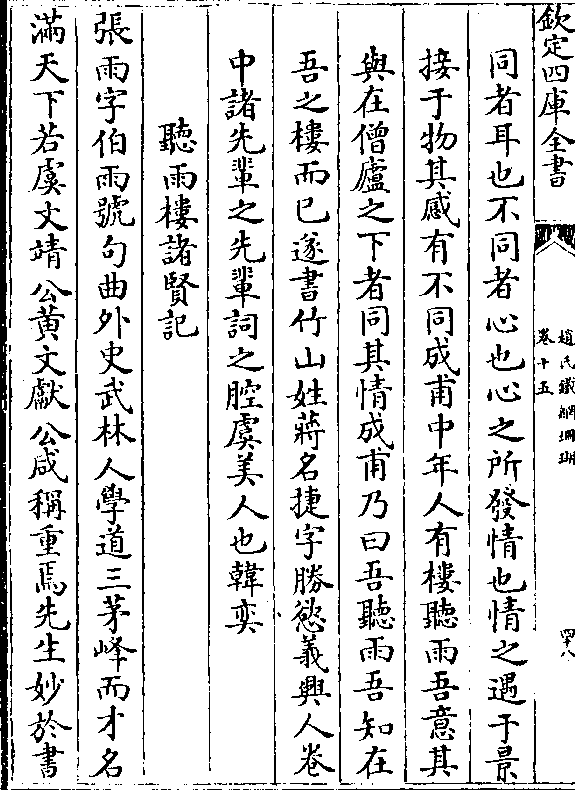 欽定四庫全書
趙氏鐵網珊瑚
卷十五
四十八
同者耳也不同者心也心之所發情也情之遇于景
接于物其感有不同成甫中年人有樓聽雨吾意其
與在僧廬之下者同其情成甫乃曰吾聽雨吾知在
吾之樓而已遂書竹山姓蔣名捷字勝慾義興人卷
中諸先輩之先輩詞之腔虞美人也韓奕
聽雨樓諸賢記
張雨字伯雨號句曲外史武林人學道三茅峰而才名
滿天下若虞文靖公黄文獻公咸稱重焉先生妙於書